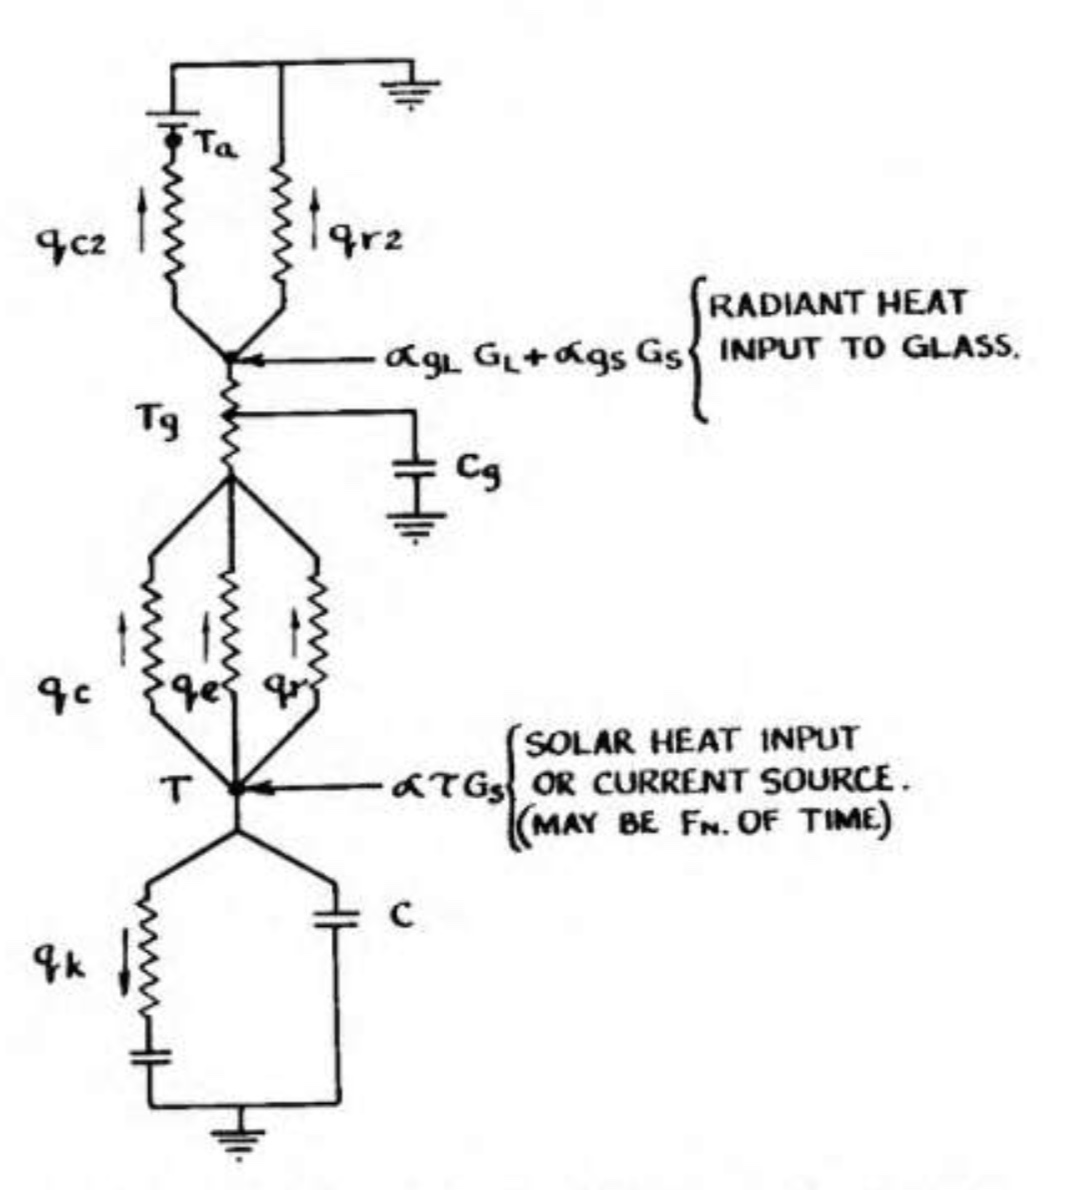 Ta
qc2
qr2
αgL GL + αgs Gs
RADIANT HEAT
INPUT TO GLASS.
Tg
Cg
qc
qe
qr
T
ατGs
SOLAR HEAT INPUT
OR CURRENT SOURCE.
(MAY BE FN. OF TIME)
qk
C